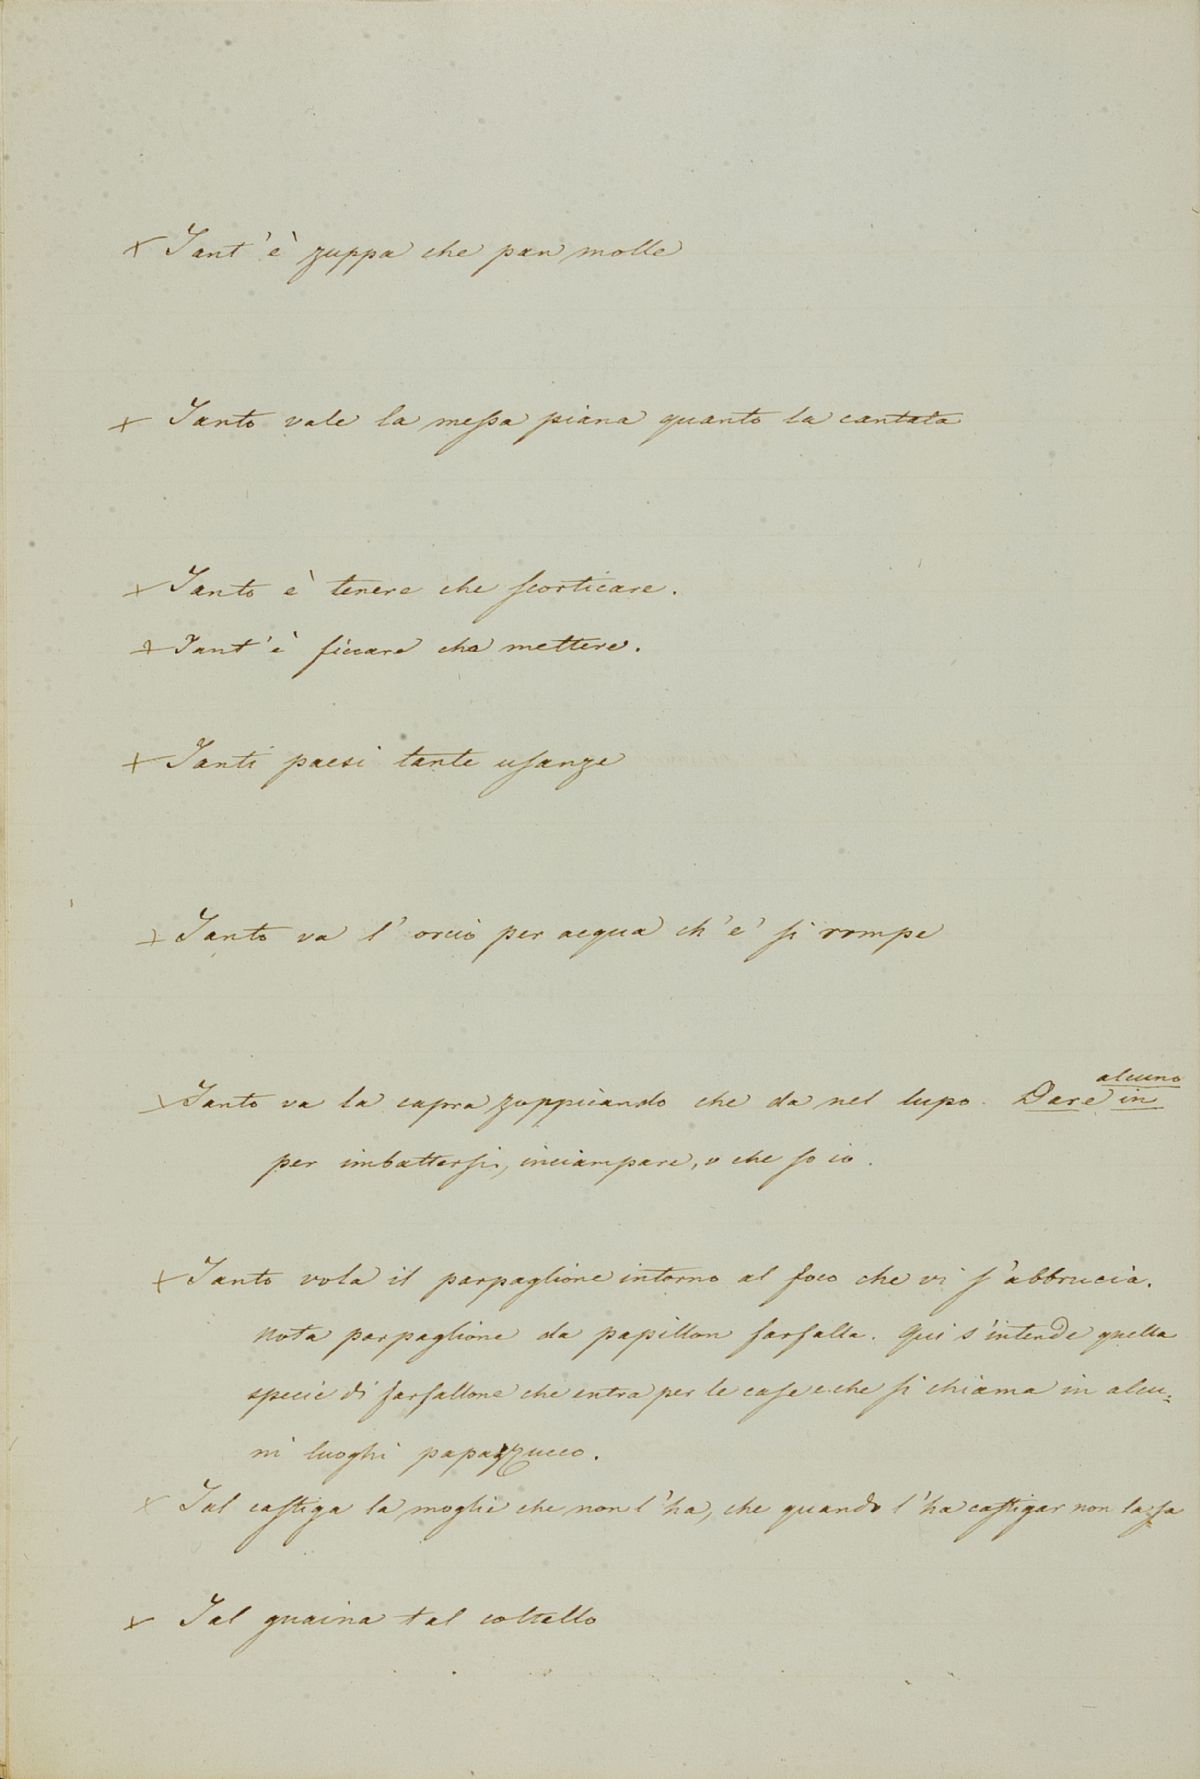 × Tant'è zuppa che pan molle
× Tanto vale la messa piana quanto la cantata
× Tanto è tenere che scorticare.
× Tant'è ficcare che mettere.
× Tanti paesi tante usanze
× Tanto va l'orcio per acqua ch'e' si rompe
× Tanto va la capra zoppicando che da nel lupo. Dare in alcuno
per imbattersi, inciampare, o che so io.
× Tanto vola il parpaglione intorno al foco che vi s'abbrucia.
Nota parpaglione da papillon farfalla. Qui s'intende quella
specie di farfallone che entra per le case e che si chiama in alcu=
ni luoghi papazzucco.
× Tal castiga la moglie che non l'ha, che quando l'ha castigar non la sa
× Tal guaina tal coltello